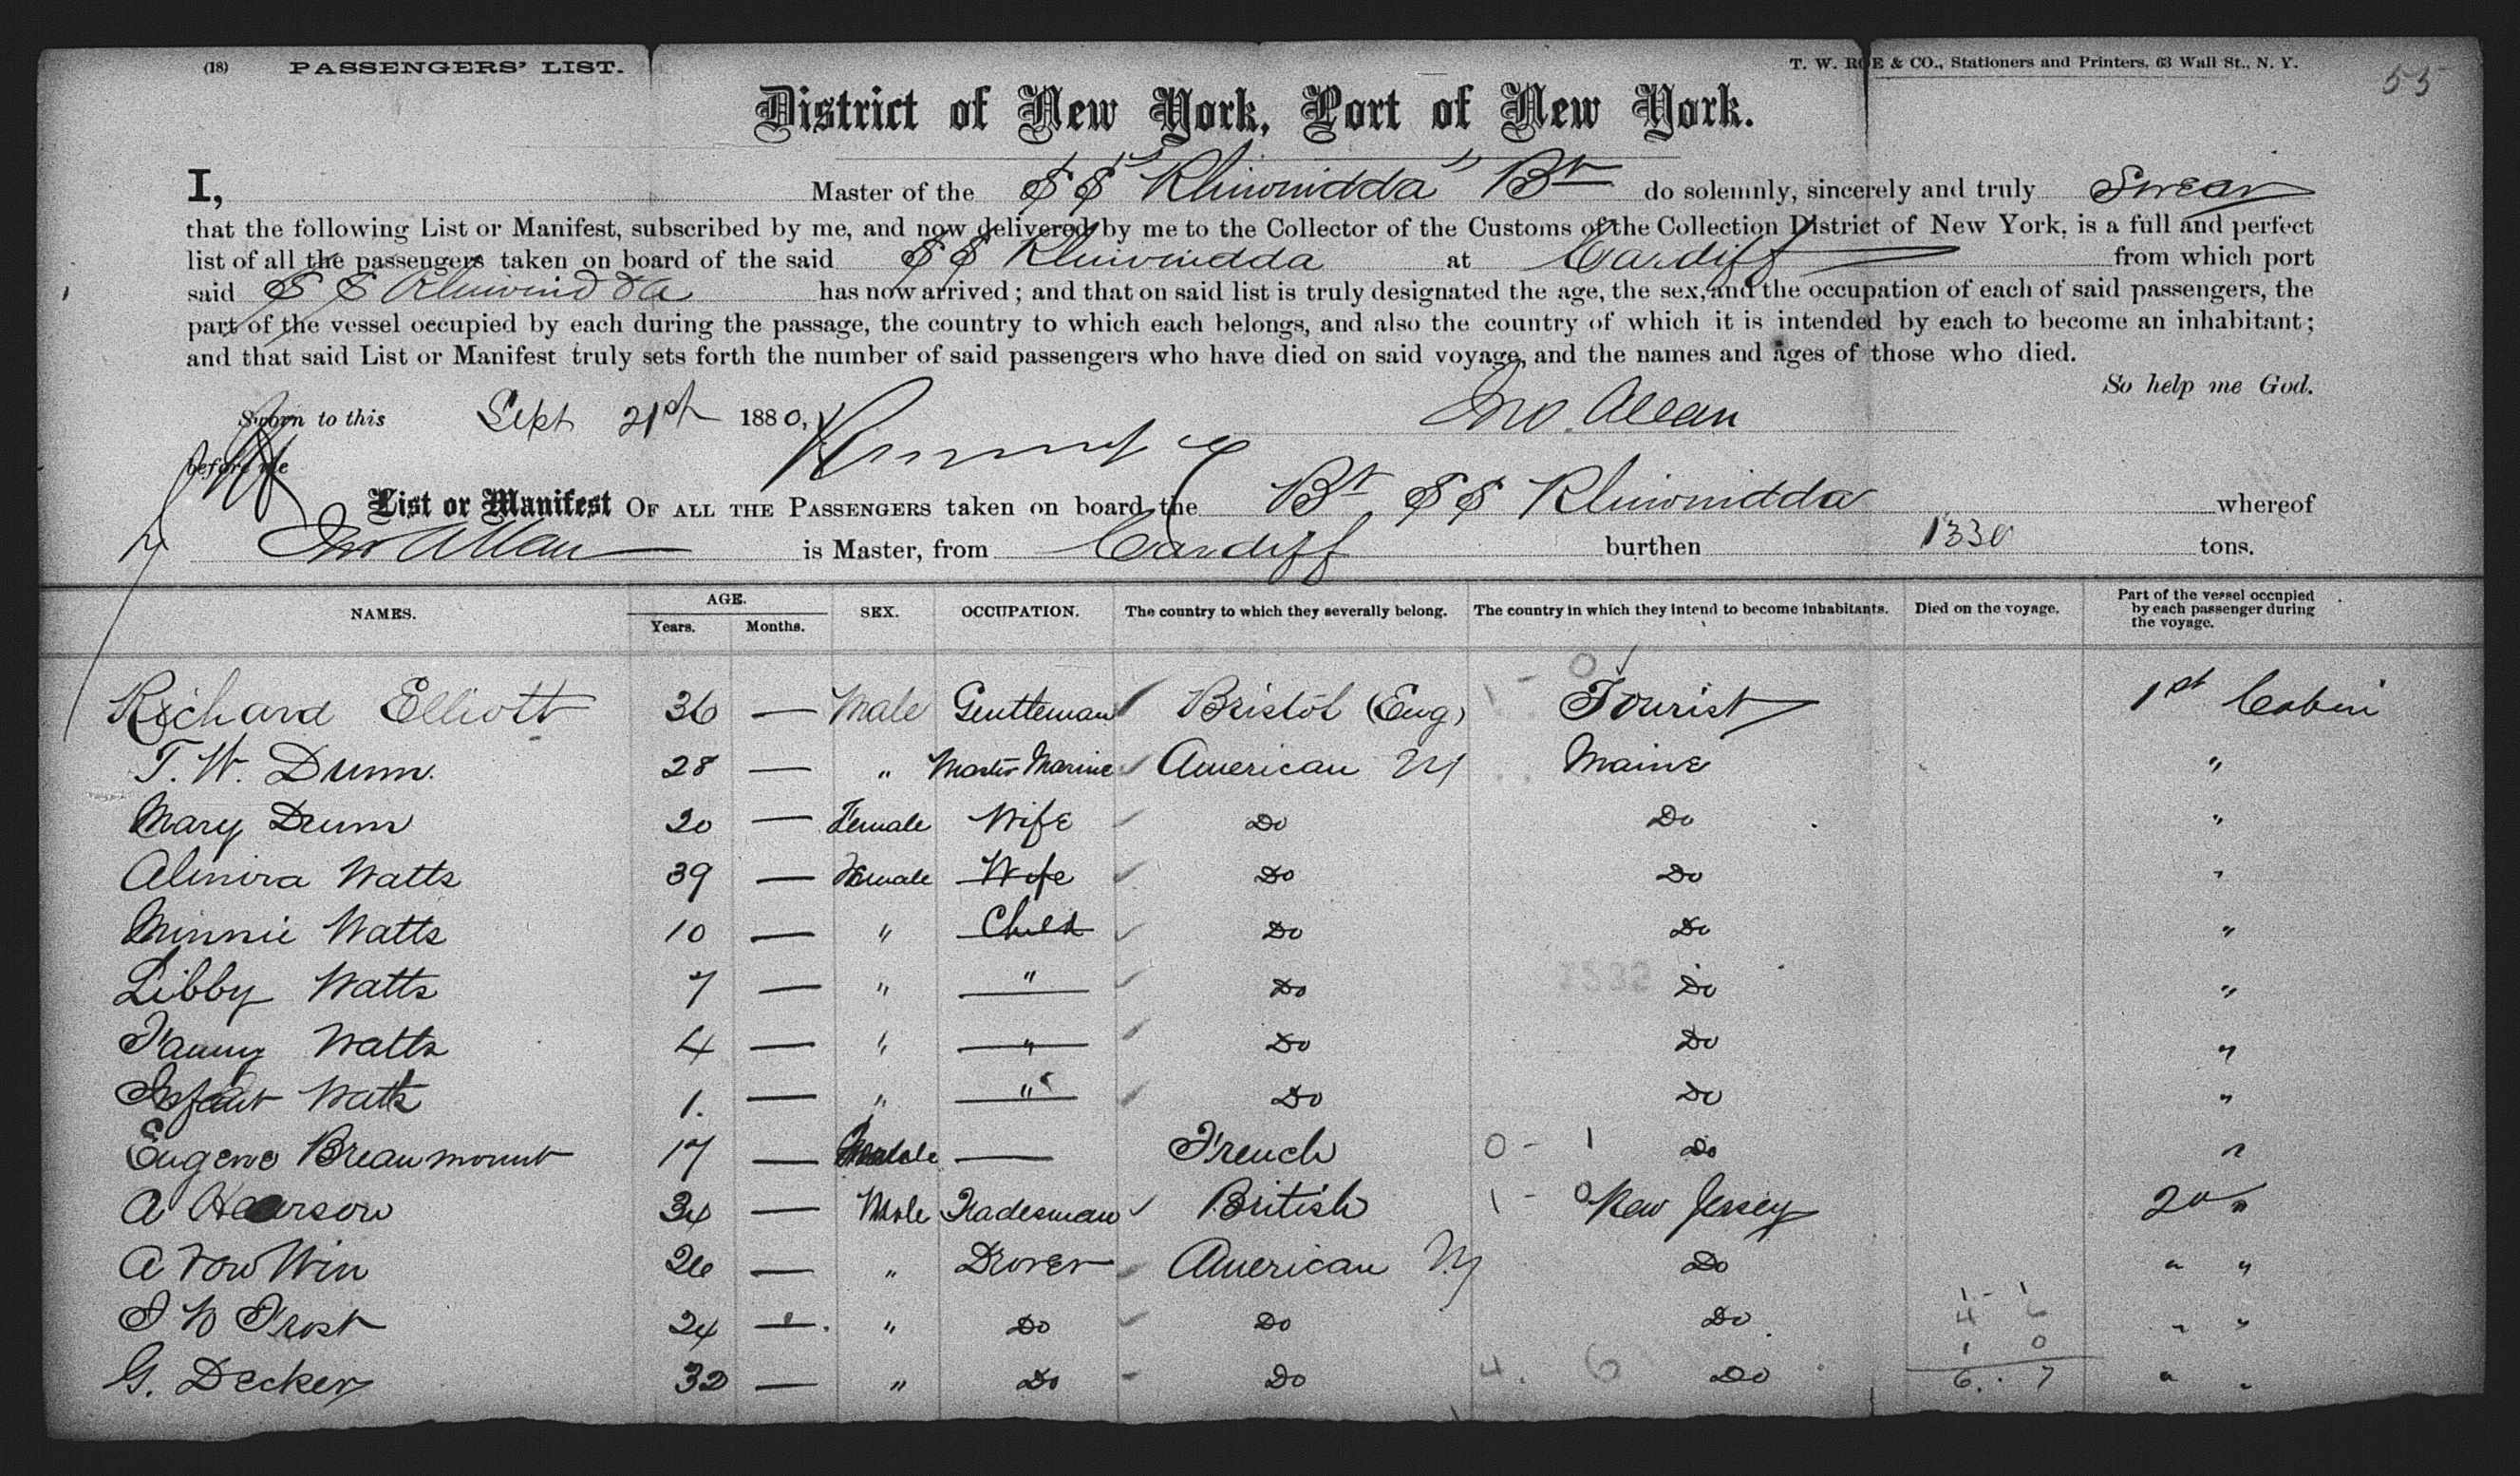 (18) PASSENGERS' LIST. T. W. ROE & CO., Stationers and Printers, 63 Wall St., N. Y. 55
District of New York, Port of New York.
I, Master of the SS "Rhiwindda" Br do solemnly, sincerely and truly Swear
that the following List or Manifest, subscribed by me, and now delivered by me to the Collector of the Customs of the Collection District of New York, is a full and perfect
list of all the passengers taken on board of the said SS Rhiwindda at Cardiff from which port
said SS Rhiwindda has now arrived; and that on said list is truly designated the age, the sex, and the occupation of each of said passengers, the
part of the vessel occupied by each during the passage, the country to which each belongs, and also the country of which it is intended by each to become an inhabitant;
and that said List or Manifest truly sets forth the number of said passengers who have died on said voyage, and the names and ages of those who died.
So help me God.
Sworn to this Sept 21st 1880, Jno. Allan
before me
List or Manifest OF ALL THE PASSENGERS taken on board the Br SS Rhiwindda whereof
Jno Allan is Master, from Cardiff burthen 1330 tons.
NAMES. AGE. Years. Months. SEX. OCCUPATION. The country to which they severally belong. The country in which they intend to become inhabitants. Died on the voyage. Part of the vessel occupied by each passenger during the voyage.
Richard Elliott 36 — Male Gentleman Bristol (Eng) 1 - 0 Tourist 1st Cabin
T. W. Dunn. 28 — " Master Marine American Maine "
Mary Dunn 20 — Female Wife Do Do "
Almira Watts 39 — Female Wife Do Do "
Minnie Watts 10 — " Child Do Do "
Libby Watts 7 — " " Do Do "
Fanny Watts 4 — " " Do Do "
Infant Watts 1. — " " Do Do "
Eugene Breaumount 17 — — French 0 - 1 Do "
A 34 — Male Tradesman British 1 - 0 New Jersey 2d "
A Win 26 — " Drover American Do " "
Frost 24 — " Do Do Do " "
G. Decker 32 — " Do Do 4. 6 Do 6. . 7 " "